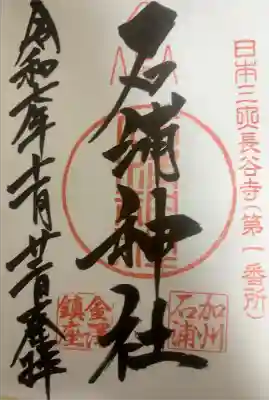 日本三 長谷寺(第一番所)
石浦神社
加州
石浦
金澤
鎮座
令和七年 月廿 日奉拝